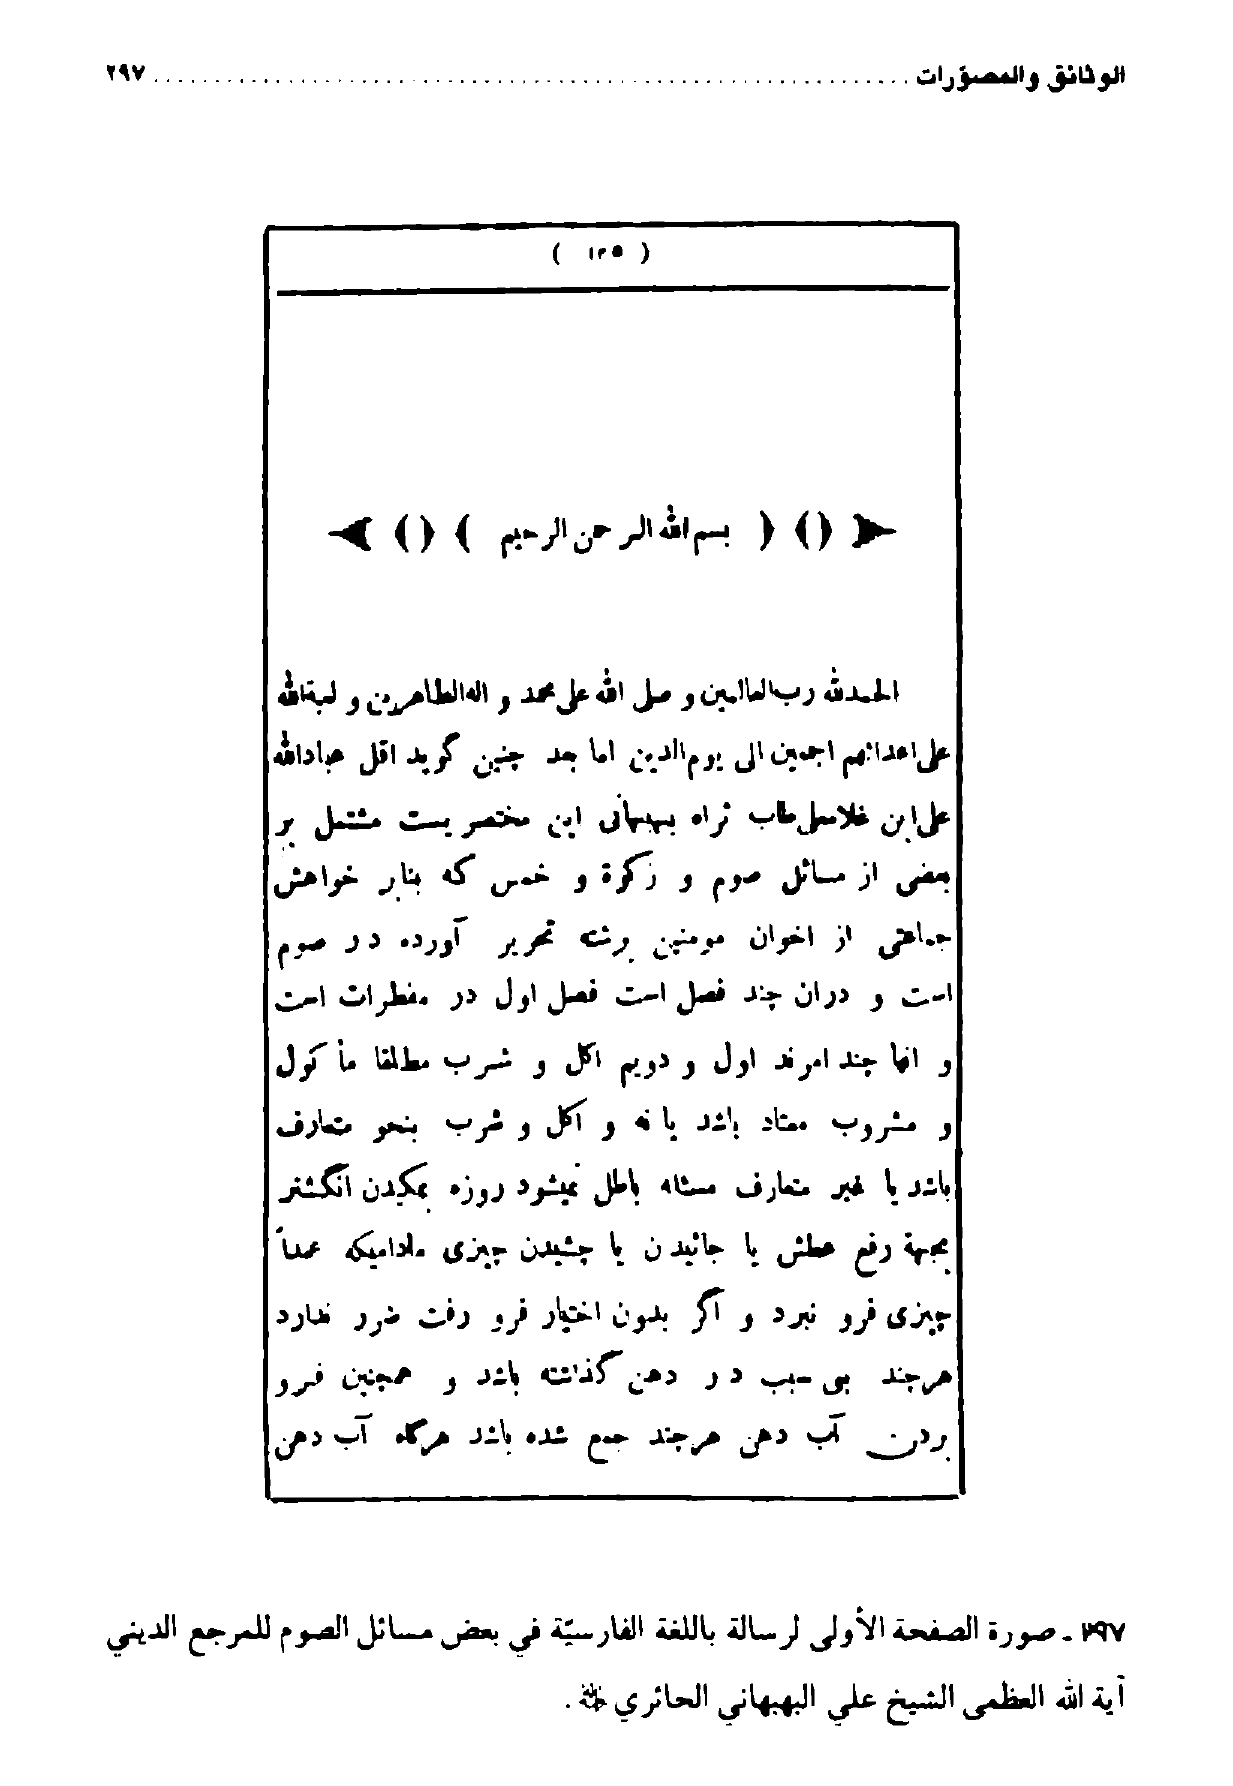 الوثائق والمصوّرات ........................................................ ٢٩٧
( ١٢٥ )
( بسم الله الرحمن الرحيم )
الحمدلله رب العالمين و صلى الله على محمد و اله الطاهرين و لعنة الله
على اعدائهم اجمعين الى يوم الدين اما بعد چنين گويد اقل عبادالله
على ابن غلامعلى طاب ثراه بهبهانى اين مختصريست مشتمل بر
بعضى از مسائل صوم و زكوة و خمس كه بنابر خواهش
جماعتى از اخوان مومنين برشته تحرير آورده در صوم
است و دران چند فصل است فصل اول در مفطرات است
و انها چند امرند اول و دويم اكل و شرب مطلقا مأكول
و مشروب معتاد باشد يا نه و اكل و شرب بنحو متعارف
باشد يا غير متعارف مسئله باطل نميشود روزه بمكيدن انگشتر
بجهة رفع عطش يا جائيدن يا چشيدن چيزى ماداميكه عمداً
چيزى فرو نبرد و اگر بدون اختيار فرو رفت ضرر ندارد
هرچند بى سبب در دهن گذاشته باشد و همچنين فرو
بردن آب دهن هرچند جمع شده باشد هرگاه آب دهن
٢٩٧ ـ صورة الصفحة الأولى لرسالة باللغة الفارسيّة في بعض مسائل الصوم للمرجع الديني
آية الله العظمى الشيخ علي البهبهاني الحائري .